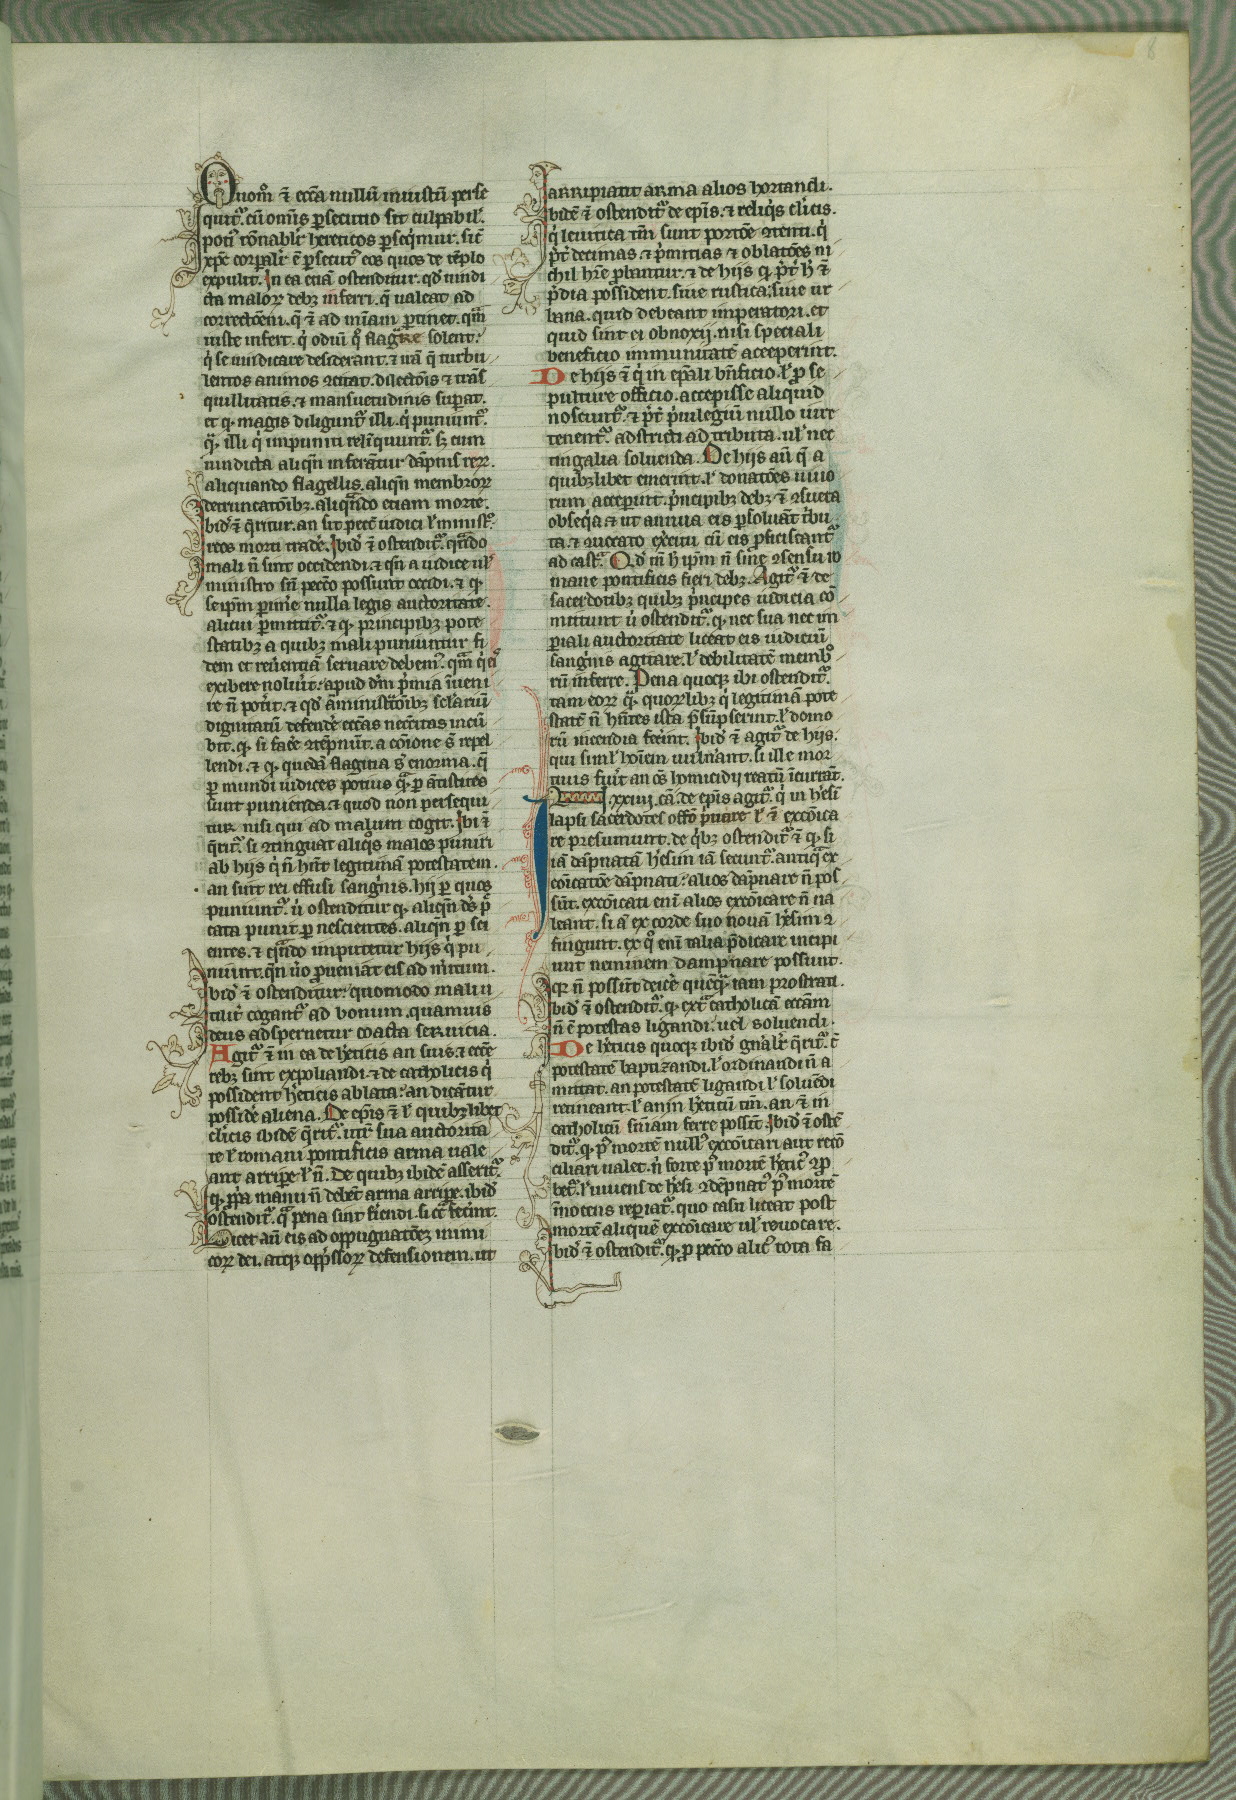 8
Quomo᷑ ⁊̄ ecc̄a nullū iniustū perse
quit᷑. cū om̄is ꝑsecutio sit culpabil᷑.
poti᷒ rōnabilr̄ hereticos ꝑseq̇mur. sic̄
xp̄c corꝑalr̄ ē ꝑsecut᷒ eos quos de tēplo
expulit. In ea etiā ostenditur. qd᷑ uindi
cta maloꝝ debꝫ inferri. q̄ ualeat ad
correctōem. q̄ ⁊̄ ad mīam ꝑtinet. qm̄
iuste infert. q̇ odiū qͦ flagͣre solent.
q̇ se uindicare desiderant. ⁊ uā q̄ turbu
lentos animos ꝯcitat. dilectōis ⁊ trās
quillitatis. ⁊ mansuetudinis suꝑat.
et qͥ magis diligunt᷑ illi. q̇ puniunt᷑.
qͣ illi q̇ impuniti relīquunt᷑. sꝫ cum
uindicta aliqn̄ inferāt᷑ dāpnis reꝝ.
aliquando flagellis. aliqn̄ membroꝝ
detruncatōibꝫ. aliqn̄do etiam morte.
Ibid᷑ ⁊̄ q̄ritur. an sit pecc̄ iudici ł minist᷑.
reos morti tradē. Ibid᷑ ⁊̄ ostendit᷑. qn̄do
mali n̄ sint occidendi. ⁊ qn̄ a iudice ul᷑
ministro sn̄ pecc̄o possunt occidi. ⁊ qͥ
seip̄m ꝑimē nulla legis auctoritate.
alicui ꝑmittit᷑. ⁊ qͥ principibꝫ pote
statibꝫ a quibꝫ mali puniuntur fi
dem et reuētiā seruare debem᷒. qm̄ q̇ eis
exibere noluīt. apud dm̄ p̄mia īueni
re n̄ potīt. ⁊ qd᷑ āministͣtōibꝫ sclarium
dignitatū defendē ecc̄as necc̄itas incū
bit. qͥ si facē ꝯtēpnūt. a cōione sn̄ repel
lendi. ⁊ qͥ quedā flagitia sn̄ enorma. q̄
ꝑ mundi iudices potius qͣ ꝑ ātistites
sunt punienda. ⁊ quod non persequi
tur nisi qui ad malum cogit. Ibi ⁊̄
q̄rit᷑. si ꝯtinguat aliqͦs malos puniri
ab hijs q̇ n̄ hn̄t legitimā potestatem.
an sint rei effusi sangͥnis. hij ꝑ quos
puniunt᷑. ū ostenditur qͥ aliqn̄ ds̄ p̄
cata punit ꝑ nescientes. aliqn̄ ꝑ sci
entes. ⁊ qn̄do imputetur hijs q̇ pu
niunt. qn̄ ūo ꝓueniāt eis ad mītum.
Ibid᷑ ⁊̄ ostenditur. quomodo mali u
tilit̄ cogant᷑ ad bonum. quamuis
deus adspernetur coacta seruicia.
Agit᷑ ⁊̄ in ea de hēticis an suis. ⁊ ecc̄e
rebꝫ sint expoliandi. ⁊ de catholicis q̇
possident hēticis ablata. an dicātur
possidē aliena. De ep̄is ⁊̄ ł quibꝫlibet
cl̄icis ibidē q̄rit᷑. utr̄ sua auctorita
te ł romani pontificis arma uale
ant arripē ł n̄. De quibꝫ ibidē asserit᷑
qͥ ꝓpͥa manu n̄ debēt arma arripē. ibid᷑
ostendit᷑. qͣ pena sint fiendi. si cͨ fecīnt.
Licet aū eis ad oppugnatōeꝫ inimi
coꝝ dei. atqꝫ opp̄ssoꝝ defensionem. ut
arripiatit arma alios hortandi.
Ibidē ⁊̄ ostendit᷑ de ep̄is. ⁊ reliqͥs cl̄icis.
q̇ leuitica tm̄ sunt portōe ꝯtenti. q̇
p̄t̄ decimas. ⁊ pͥmitias ⁊ oblatōes ni
chil hr̄e ꝓbantur. ⁊ de hijs qͥ p̄t̄ h̄ ⁊̄
p̄dia possident. siue rustica. siue ur
bana. quid debeant imperatori. et
quid sint ei obnoxij. nisi speciali
beneficio immunitatē acceperint.
De hijs ⁊̄ q̇ in ep̄ali bn̄ficio. ł ꝓ se
pulture officio. accepisse aliquid
noscunt᷑. ⁊ p̄t̄ pͥuilegiū nullo iure
tenent᷑ adstricti ad tributa. ul᷑ uec
tingalia soluenda. De hijs aū q̄ a
quibꝫlibet emerint. ł donatōes uiuo
rum acceperūt. pͥncipibꝫ debꝫ ⁊̄ ꝯsueta
obseqͥa ⁊ ut annua eis ꝑsoluāt tͥbu
ta. ⁊ ꝯuocato exc̄itu cū eis ꝓficiscant᷑
ad castͣ. Qd᷑ tn̄ h̄ ip̄m n̄ sine ꝯsensu ro
mane pontificis fieri debꝫ. Agit᷑ ⁊̄ de
sacerdotibꝫ quibꝫ pͥncipes iudicia cō
mittunt ū ostendit᷑. qͥ nec sua nec im
ꝑiali auctoritate liceat eis iudiciū
sangͥnis agitare. ł debilitatē memb᷑
rū inferre. Pena quoqꝫ ibi ostendit᷑.
tam eoꝝ qͣ quoꝝlibꝫ q̇ legitimā pote
statē n̄ hn̄tes ista p̄sūpserint. ł domo
rū incendia fecīnt. Ibid᷑ ⁊̄ agit᷑ de hijs.
qui simł hoīem uulnāant. si ille mor
tuus fuīt an oēs homicidij reatū īcurrāt.
In xxiiij cā. de ep̄is agit᷑. q̇ in hͤsī
lapsi sacerdotes offō pͥuare ł ⁊̄ excōica
re presumunt. de qͥbꝫ ostendit᷑ ⁊̄ qͥ si
iā dāpnatā hͤsim iā secunt᷑. antiqͣ ex
cōicatōe dāpnati. alios dāpnare n̄ pos
sūt. excōicati enī alios excōicare n̄ ua
leant. si ā ex corde suo nouā hͤsim ꝯ
fingunt. ex qͦ enī talia p̄dicare incipi
unt neminem dampnare possunt.
Qꝛ n̄ possūt deicē quēqͣ iam prostrati.
Ibid᷑ ⁊̄ ostendit᷑. qͥ extͣ catholicā ecc̄am
n̄ ē potestas ligandi. uel soluendi.
De hēticis quoqꝫ ibid᷑ gnāłr q̄rit᷑. ⁊̄
potestatē baptizandi. ł ordinandi n̄ a
mittāt. an potestatē ligandi ł soluēdi
retineant. ł an in hēticū tm̄. an ⁊̄ in
catholicū sn̄iam ferre possūt. Ibid᷑ ⁊̄ ostē
dit᷑. qͥ pͦ mortē null᷒ excōicari aut recō
ciliari ualet. n̄ forte pͦ mortē hētic᷒ ꝯꝓ
bet᷑. ł uiuens de hͤsi ꝯdēpnat᷒ pͦ mortē
īnocens reꝑiat᷑. quo casu liceat post
mortē aliquē excōicare ul᷑ reuocare.
Ibid᷑ ⁊̄ ostendit᷑. qͥ ꝓ pecc̄o alic᷒ tota fa